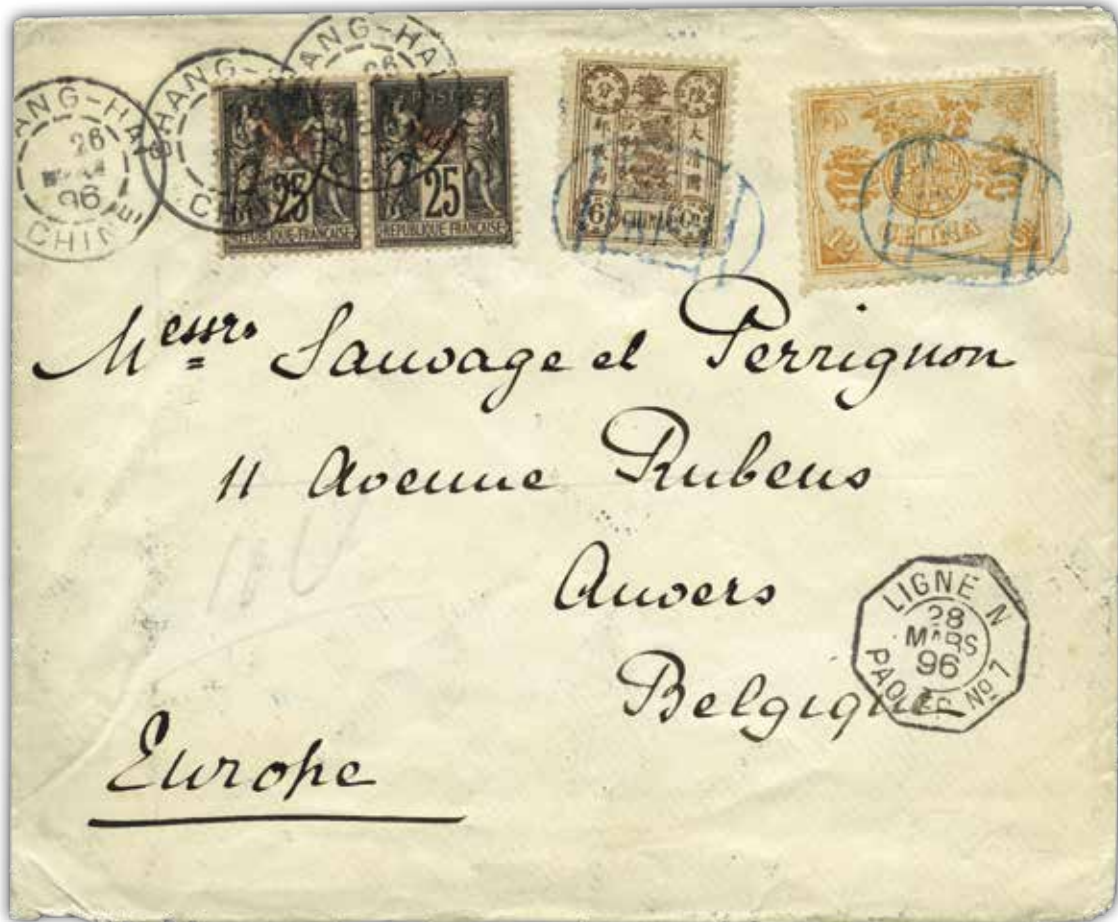 SHANG-HAI
26
96
CHINE
SHANG-
CHI
ANG-HAI
26
25
REPUBLIQUE FRANCAISE
25
REPUBLIQUE FRANCAISE
分
大清國
郵政局
6
CHINA
12
CHINA
Messrs Sauvage et Perrignon
11 Avenue Rubens
Anvers
Belgique
Europe
LIGNE N
28
MARS
96
PAQ. FR. No 7